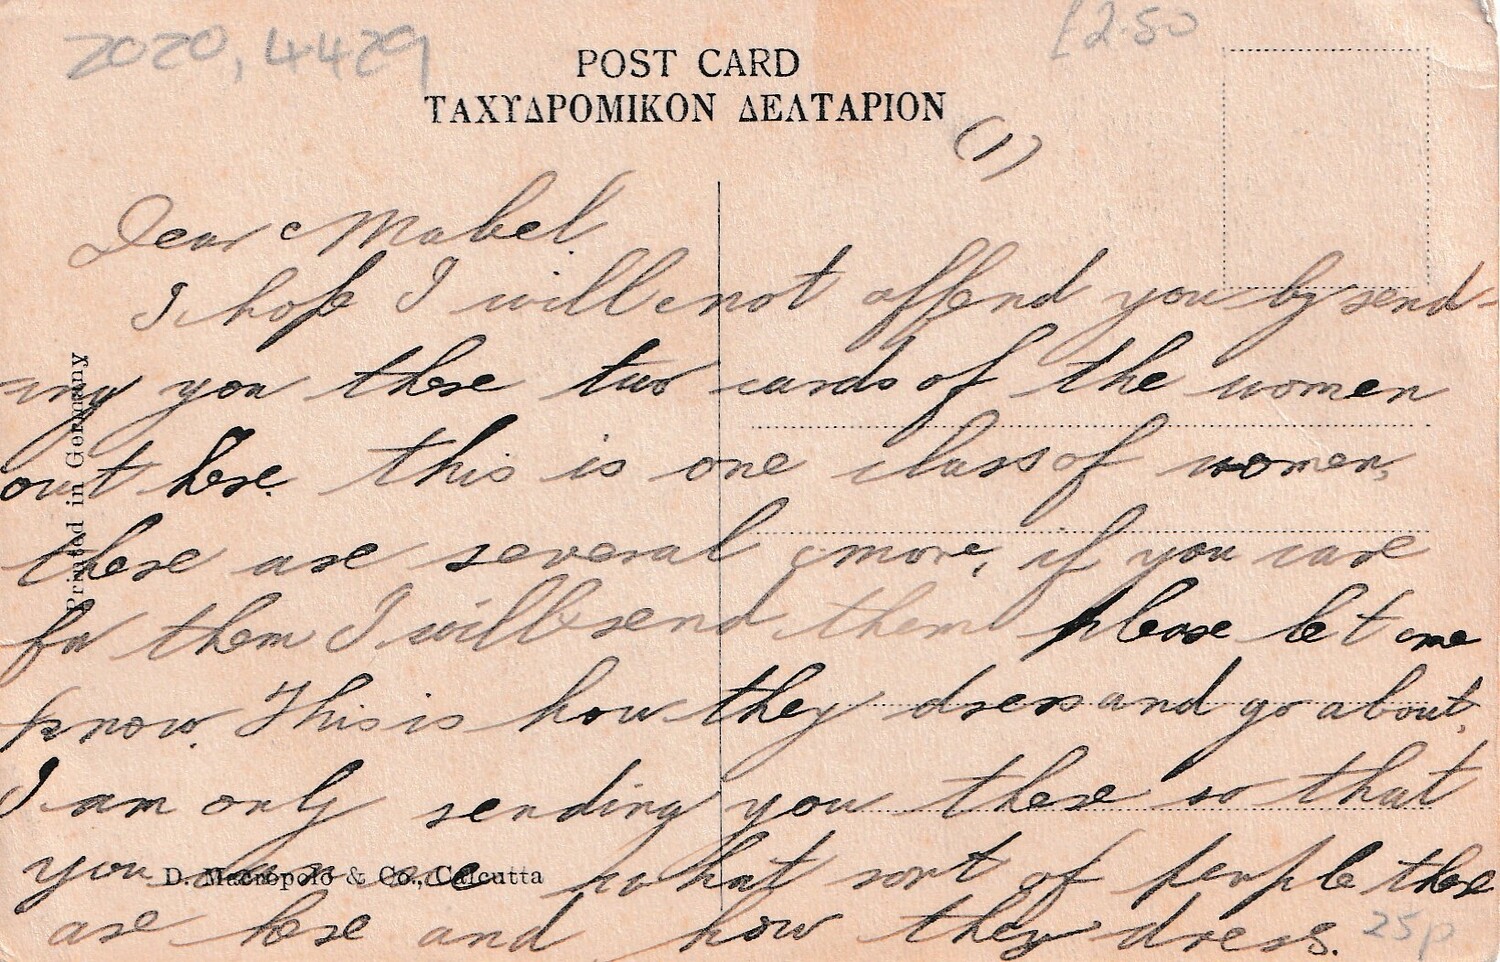 2020,4429
£2.50
POST CARD
ΤΑΧΥΔΡΟΜΙΚΟΝ ΔΕΛΤΑΡΙΟΝ
(1)
Dear Mabel.
I hope I will not offend you by send-
-ing you these two cards of the women
out here. this is one class of women,
there are several more, if you care
for them I will send them please let me
know. This is how they dress and go about.
I am only sending you these so that
you can see what sort of people there
are here and how they dress.
25p
Printed in Germany
D. Macropolo & Co., Calcutta